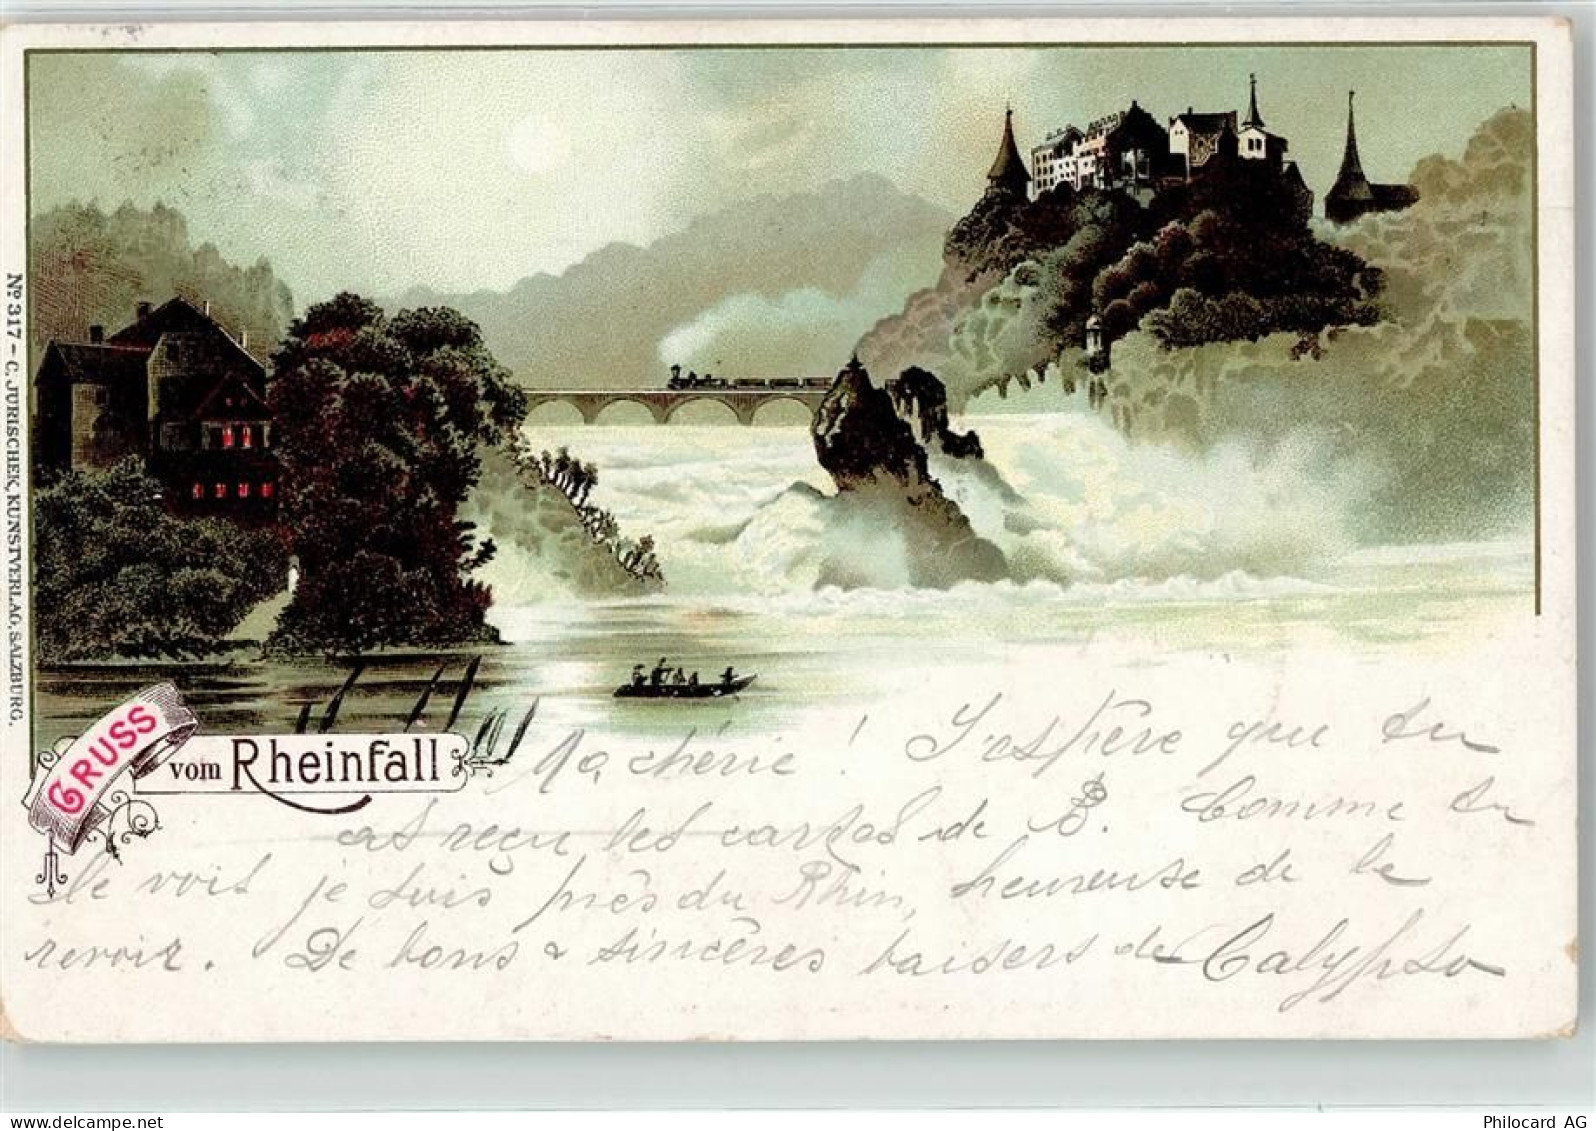 Nº 317 – C. JURISCHEK, KUNSTVERLAG, SALZBURG.
GRUSS
vom Rheinfall
Ma chérie ! J'espère que tu
as reçu les cartes de B. Comme tu
le vois je suis près du Rhin, heureuse de le
revoir. De bons & sincères baisers de Calypso
Philocard AG